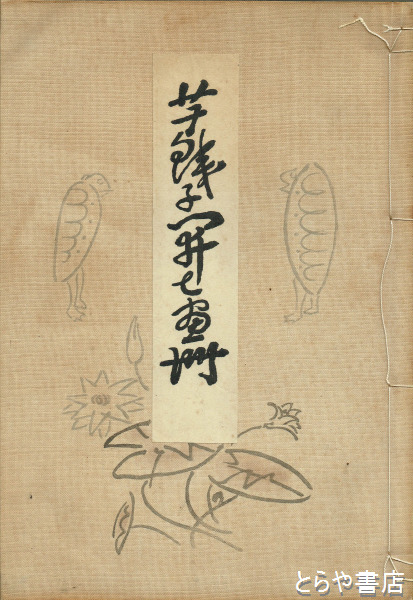 芋銭子開七画冊
とらや書店